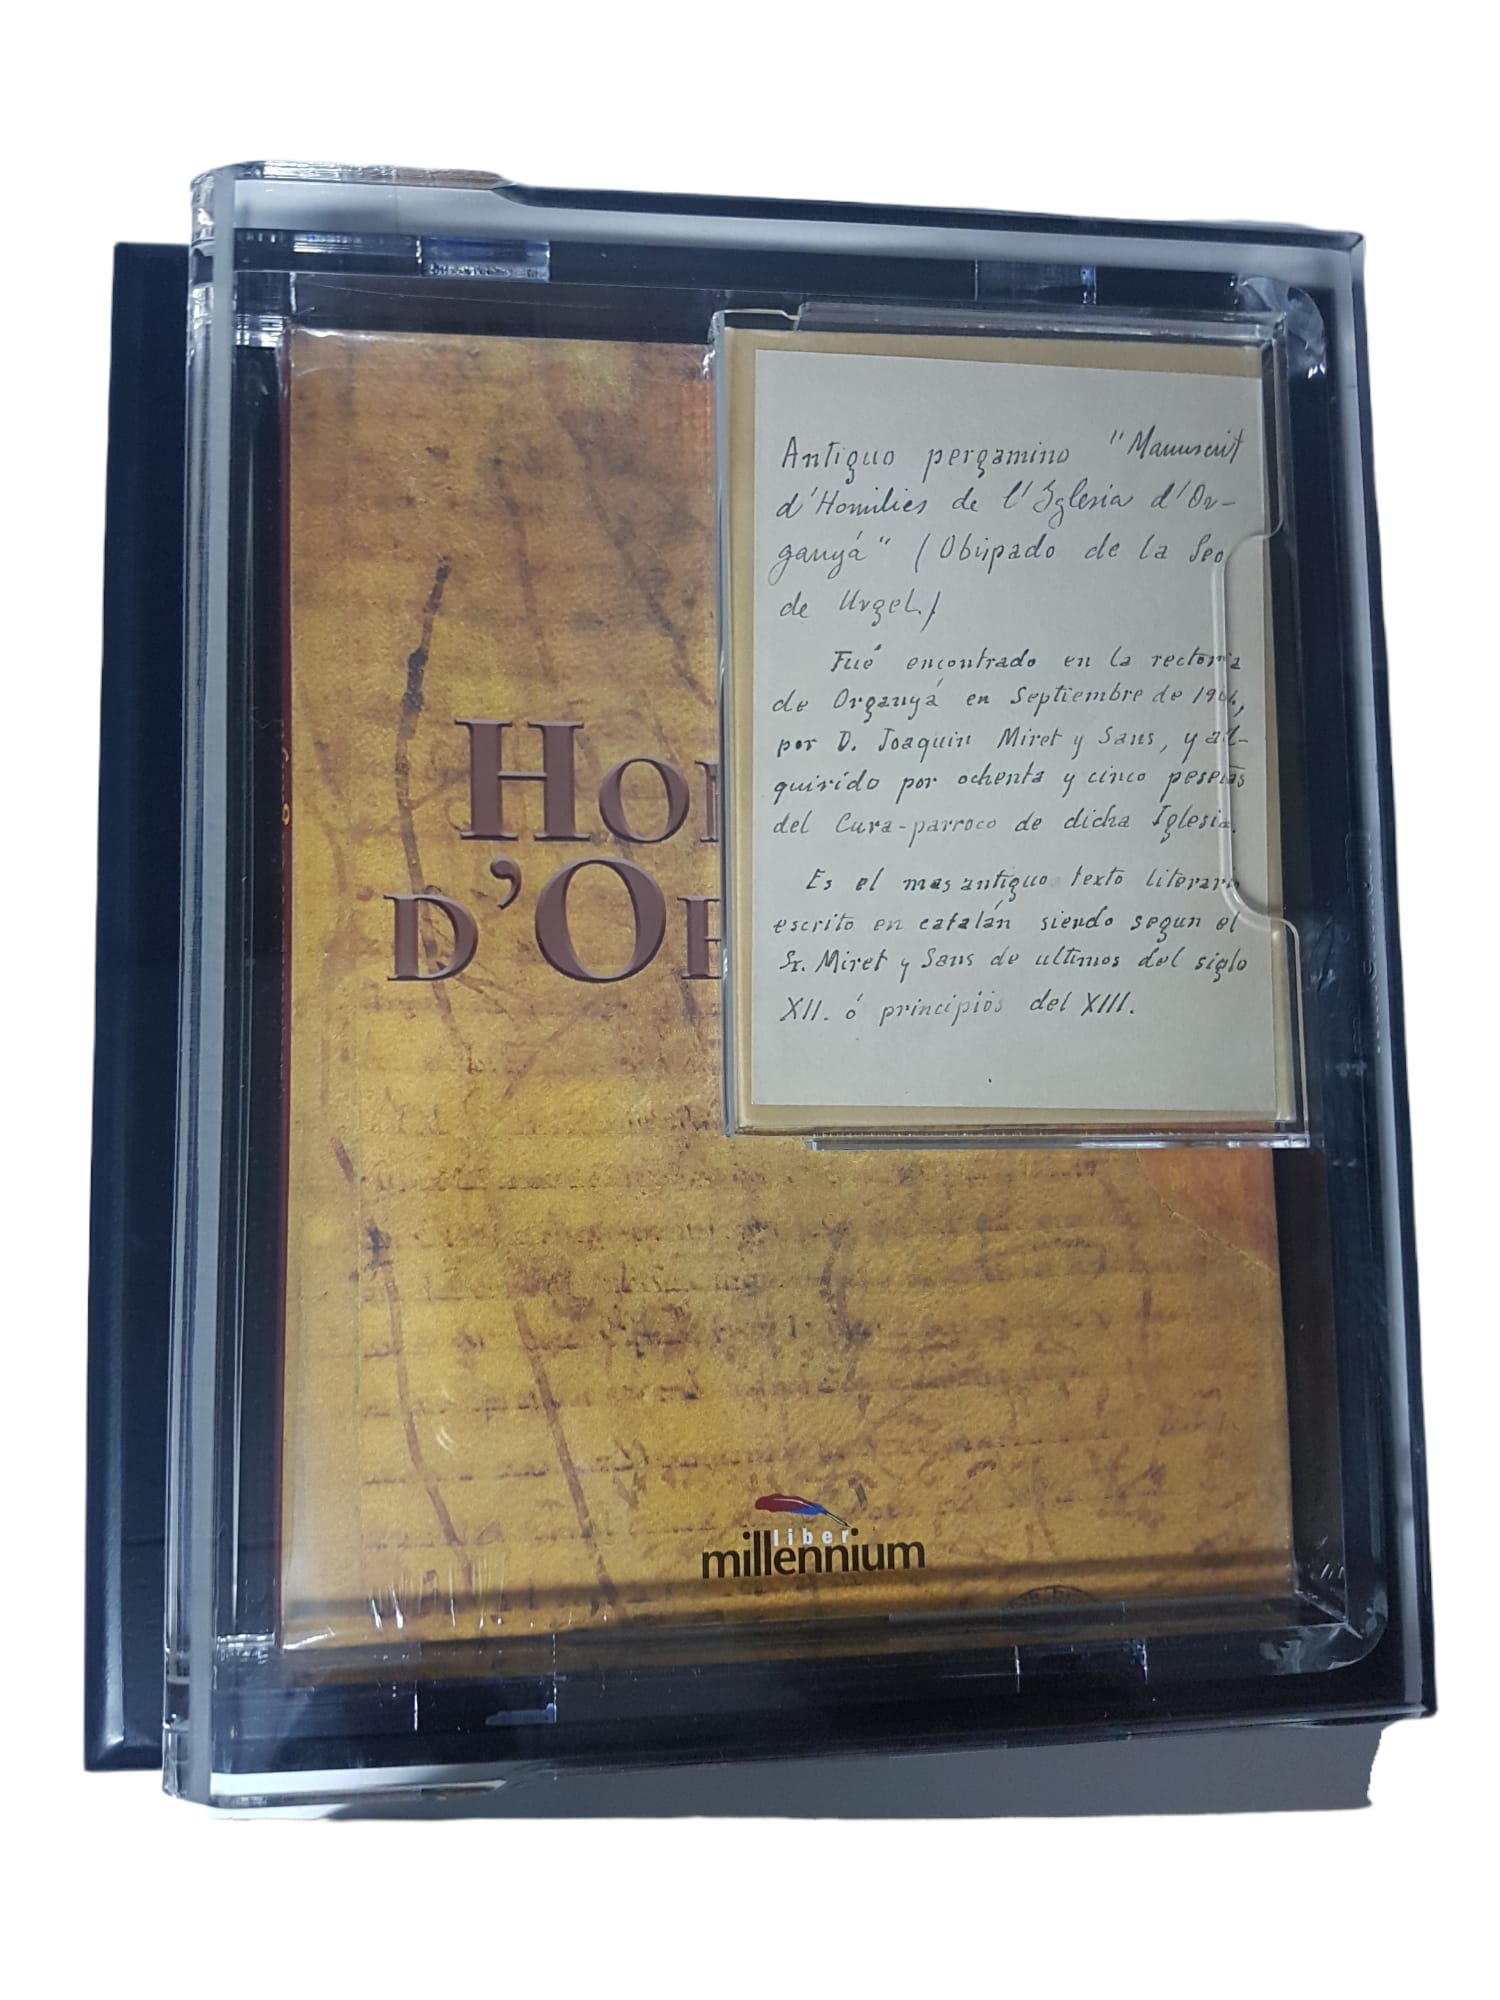 Ho
d'O
Antiguo pergamino "Manuscrit
d'Homilies de l'Iglesia d'Or-
ganyá" (Obispado de la Seo
de Urgel.)
Fué encontrado en la rectoria
de Organyá en Septiembre de
por D. Joaquin Miret y Sans, y ad-
quirido por ochenta y cinco pesetas
del Cura-parroco de dicha Iglesia.
Es el mas antiguo texto literario
escrito en catalán siendo segun el
Sr. Miret y Sans de ultimos del siglo
XII. ó principios del XIII.
liber
millennium